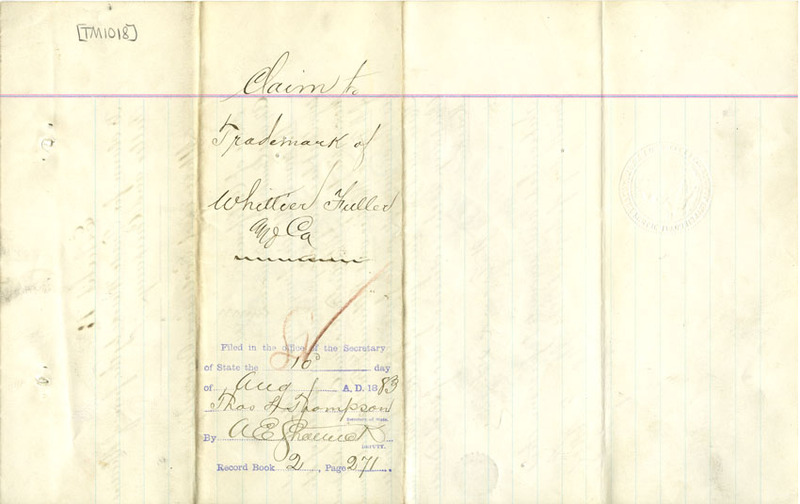 [TM1018]
Claim to
Trademark of
Whittier Fuller
and Co
Filed in the office of the Secretary
of State the 10th day
of Aug A. D. 1883
Thos L. Thompson
SECRETARY OF STATE.
By A E
DEPUTY.
Record Book 2, Page 271.